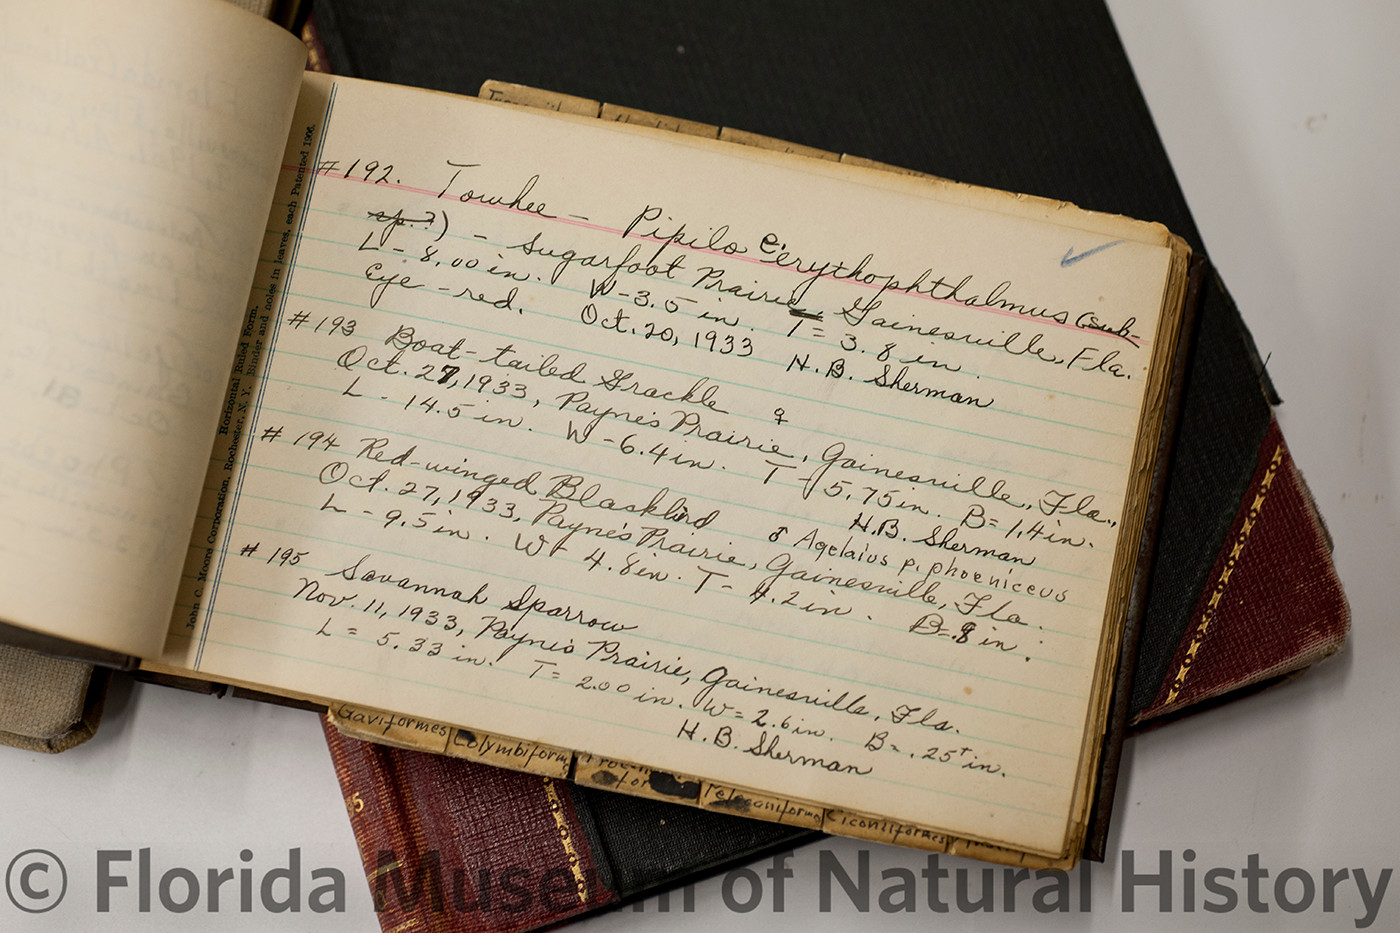 #192. Towhee - Pipilo e. erythophthalmus (sub-
sp.?) - Sugarfoot Prairie, Gainesville, Fla.
L - 8.00 in. W - 3.5 in. T = 3.8 in.
Eye - red. Oct. 20, 1933 H.B. Sherman
#193 Boat-tailed Grackle ♀
Oct. 27, 1933, Payne's Prairie, Gainesville, Fla.,
L - 14.5 in. W - 6.4 in. T - 5.75 in. B = 1.4 in.
H.B. Sherman
#194 Red-winged Blackbird ♂ Agelaius p. phoeniceus
Oct. 27, 1933, Payne's Prairie, Gainesville, Fla.
L - 9.5 in. W - 4.8 in. T - 4.2 in. B = .8 in.
#195 Savannah Sparrow
Nov. 11, 1933, Payne's Prairie, Gainesville, Fla.
L = 5.33 in. T = 2.00 in. W = 2.6 in. B = .25+ in.
H.B. Sherman
Horizontal Ruled Form.
John C. Moore Corporation, Rochester, N. Y. Binder and holes in leaves, each Patented 1906.
Gaviiformes
Colymbiform
Ciconiiformes
© Florida Museum of Natural History